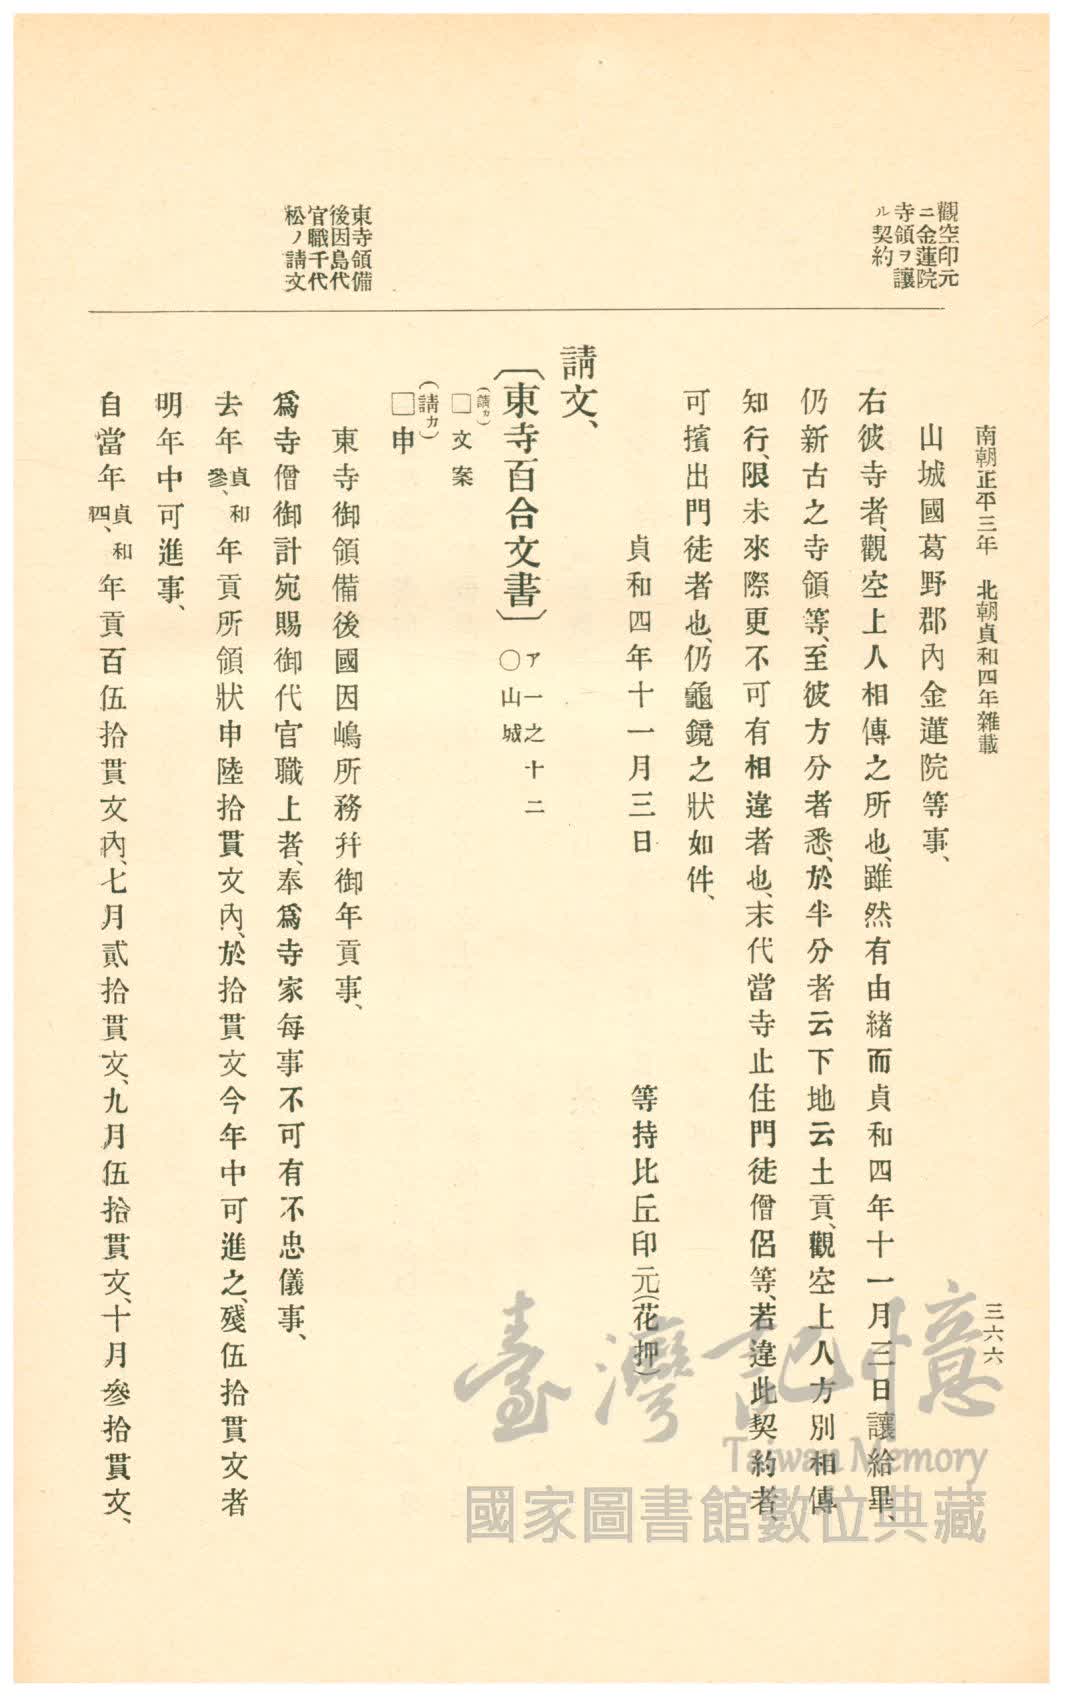 南朝正平三年　北朝貞和四年雜載
三六六
觀空印元
ニ金蓮院
寺領ヲ讓
ル契約
山城國葛野郡內金蓮院等事、
右彼寺者、觀空上人相傳之所也、雖然有由緖而貞和四年十一月三日讓給畢、
仍新古之寺領等、至彼方分者悉、於半分者云下地云土貢、觀空上人方別相傳
知行、限未來際更不可有相違者也、末代當寺止住門徒僧侶等、若違此契約者、
可擯出門徒者也、仍龜鏡之狀如件、
貞和四年十一月三日　等持比丘印元(花押)
請文、
〔東寺百合文書〕○山城 ア一之十二
(請カ)
□文案
(請カ)
□申
東寺領備
後因島代
官職千代
松ノ請文
東寺御領備後國因嶋所務幷御年貢事、
爲寺僧御計宛賜御代官職上者、奉爲寺家每事不可有不忠儀事、
去年貞和參、年貢所領狀申陸拾貫文內、於拾貫文今年中可進之、殘伍拾貫文者
明年中可進事、
自當年貞和四、年貢百伍拾貫文內、七月貳拾貫文、九月伍拾貫文、十月參拾貫文、
臺灣記憶
Taiwan Memory
國家圖書館數位典藏